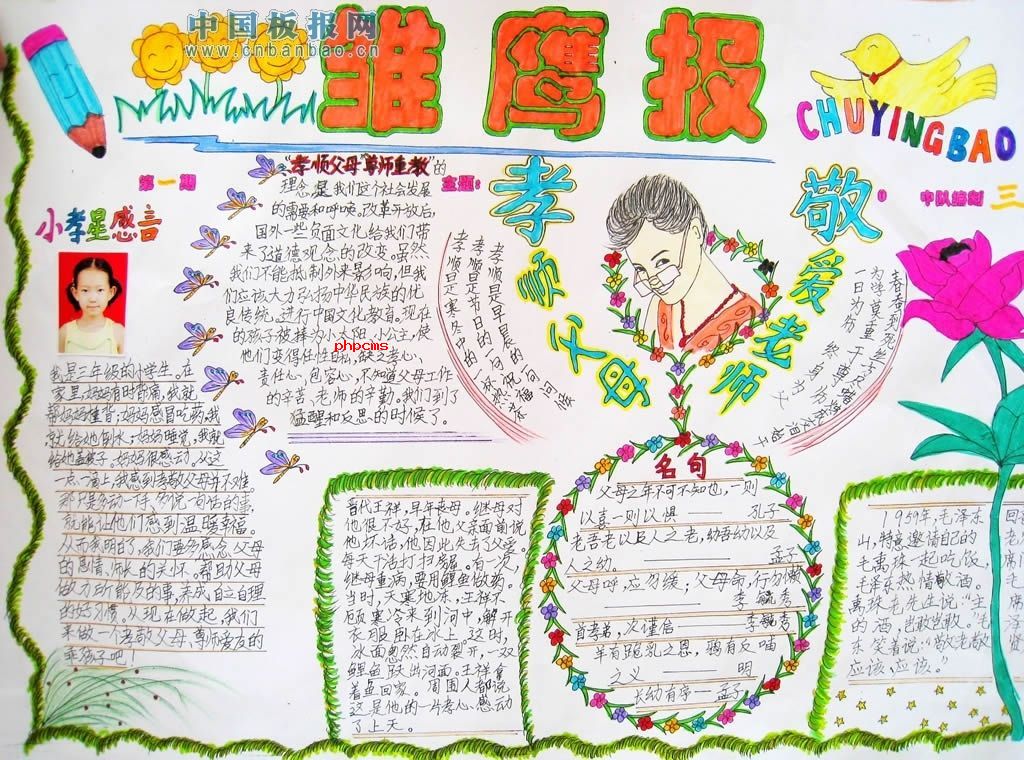 中国板报网
www.cnbanbao.cn
雏鹰报
CHUYINGBAO
第一期
主题:
孝师父母
敬爱老师
中队编制
三
"孝顺父母""尊师重教"的
理念是我们这个社会发展
的需要和呼唤。改革开放后,
国外一些负面文化给我们带
来了道德观念的改变。虽然
我们不能抵制外来影响,但我
们应该大力弘扬中华民族的优
良传统。进行中国文化教育。现在
的孩子被称为小太阳、小公主,使
他们变得任性自私,缺乏孝心,
责任心,包容心,不知道父母工作
的辛苦、老师的辛勤。我们到了
猛醒和反思的时候了。
phpcms
小孝星感言
我是三年级的小学生。在
家里,妈妈有时背痛,我就
帮妈妈捶背;妈妈感冒吃药,我
就给她倒水;妈妈睡觉,我就
给她盖被子。妈妈很感动。从这
一点一滴上,我感到孝敬父母并不难。
那只是多动一下,多说一句话的事,
就能让他们感到温暖幸福。
从而我明白了,我们要多感念父母
的恩情、师长的关怀。帮助父母
做力所能及的事,养成自立自理
的好习惯。从现在做起,我们
来做一个孝敬父母、尊师爱友的
乖孩子吧!
孝顺是早晨的一句问候
孝顺是节日的一句祝福
孝顺是寒冬中的一杯热茶
春蚕到死丝
一日为师 终身为父
晋代王祥,早年丧母。继母对
他很不好,在他父亲面前说
他坏话,他因此失去了父爱。
每天干活打扫房。有一次,
继母重病,要用鲤鱼做药。
当时,天寒地冻,王祥不
顾寒冷来到河中,解开
衣服卧在冰上。这时,
冰面忽然自动裂开,一双
鲤鱼跃出河面。王祥拿
着鱼回家。周围人都说
这是他的一片孝心,感动
了上天。
名句
父母之年不可不知也,一则
以喜一则以惧——孔子
老吾老以及人之老,幼吾幼以及
人之幼。——孟子
父母呼,应勿缓;父母命,行勿懒
——李毓秀
首孝弟,次谨信——李毓秀
羊有跪乳之恩,鸦有反哺
之义——明
长幼有序—孟子
1959年,毛泽东
山,特意邀请自己的
毛禹珠一起吃饭,
毛泽东热情敬酒。
禹珠老先生说:"主
的酒,岂敢岂敢。"毛
东笑着说:"敬老尊
应该、应该。"